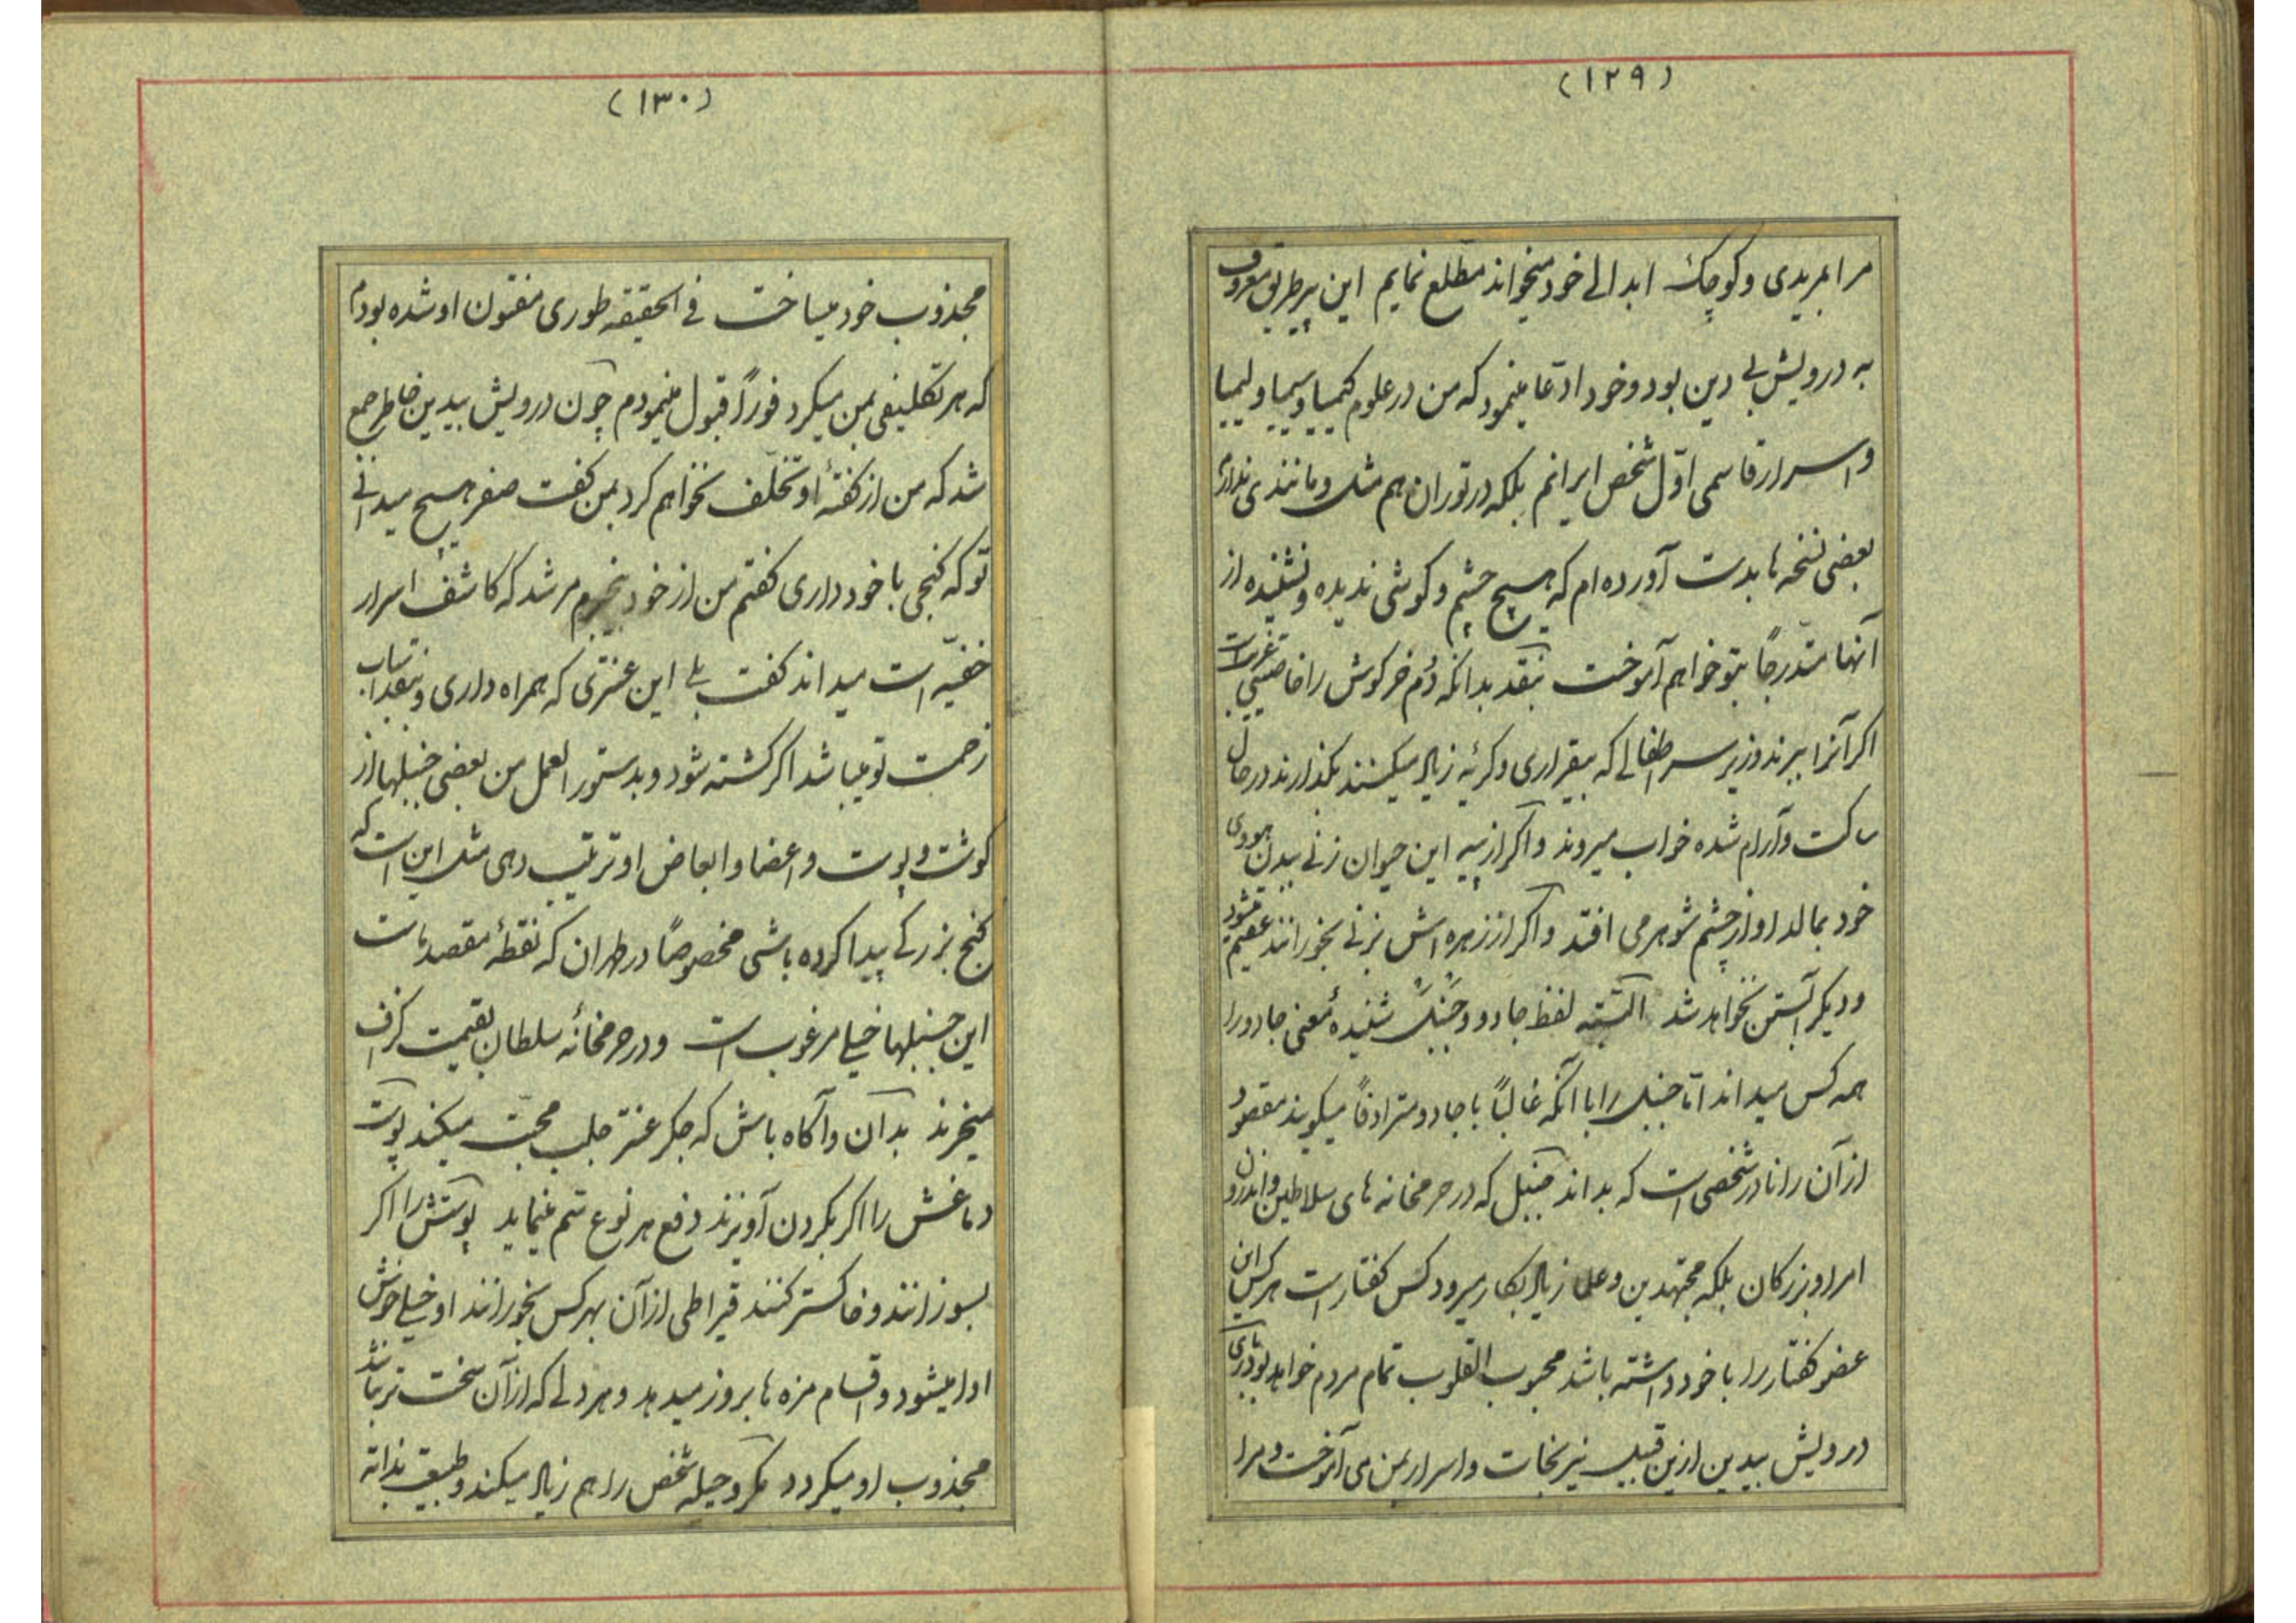 (۱۲۹)
مرا بمریدی و کوچک ابدالی خود میخواند مطلع نمایم این پیر طریق معروف
به درویش بی دین بود و خود ادّعا مینمود که من در علوم کیمیا و سیمیا و لیمیا
و اسرار قاسمی اوّل شخص ایرانم بلکه در توران هم مثل و مانندی ندارم
بعضی نسخه ها بدست آورده ام که هیچ چشم و کوشی ندیده و نشنیده از
آنها متدرجاً بتو خواهم آموخت بنقد بدانکه دُم خرکوش را خاصیتی غریب است
اکر آنرا ببرند و زیر سر اطفالی که بیقراری و کریه زیاد میکنند بکذارند در حال
ساکت و آرام شده خواب میروند و اکر از پیه این حیوان زنی ببدن هووی
خود بمالد او از چشم شوهر می افتد و اکر از زهره اش بزنی بخورانند عقیم میشود
و دیکر آبستن نخواهد شد البتّه لفظ جادو و جَنبَل شنیدهٔ معنی جادو را
همه کس میداند امّا جنبل را با آنکه غالباً با جادو مترادفاً میکویند مقصود
از آن را نادر شخصی است که بداند جنبل که در حرمخانه های سلاطین و اندرون
امرا و بزرکان بلکه مجتهدین و علما زیاد بکار میرود کس کفتار است هر کس این
عضو کفتار را با خود داشته باشد محبوب القلوب تمام مردم خواهد بود باری
درویش بیدین ازین قبیل نیرنجات و اسرار بمن می آموخت و مرا
(۱۳۰)
مجذوب خود میساخت فی الحقیقه طوری مفتون او شده بودم
که هر تکلیفی بمن میکرد فوراً قبول مینمودم چون درویش بیدین خاطر جمع
شد که من از کفتهٔ او تخلّف نخواهم کرد بمن کفت صفر هیچ میدانی
تو که کنجی با خود داری کفتم من از خود بیخبرم مرشد که کاشف اسرار
خفیّه است میداند کفت بلی این عنتری که همراه داری و بنقد اسباب
زحمت تو میباشد اکر کشته شود و بدستور العمل من بعضی جنبلها از
کوشت و پوست و اعضا و ابعاض او ترتیب دهی مثل این است که
کنج بزرکی پیدا کرده باشی مخصوصاً در طهران که نقطهٔ مقصد ماست
این جنبلها خیلی مرغوب است و در حرمخانهٔ سلطان بقیمت کزاف
میخرند بدان و آکاه باش که جکر عنتر جلب محبّت میکند پوست
دماغش را اکر بکردن آویزند دفع هر نوع سّم مینماید پوستش را اکر
بسوزانند و خاکستر کنند قیراطی از آن بهر کس بخورانند او خیلی خوش
ادا میشود و اقسام مزه ها بروز میدهد و هر دلی که از آن سخت تر نباشد
مجذوب او میکردد مکر و حیله شخص را هم زیاد میکند و طبیعت بذاته